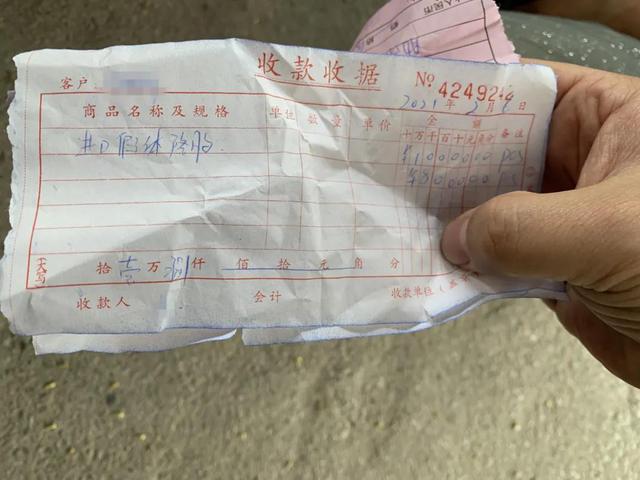 收款收据
客户:
No 42492
2021年2月4日
商品名称及规格 单位 数量 单价 金额 备注
十万千百十元角分
进口假体隆胸 ¥1000000 pos
¥800000
大写 拾壹万捌仟佰拾元角分
收款人 会计 收款单位(盖
人民币